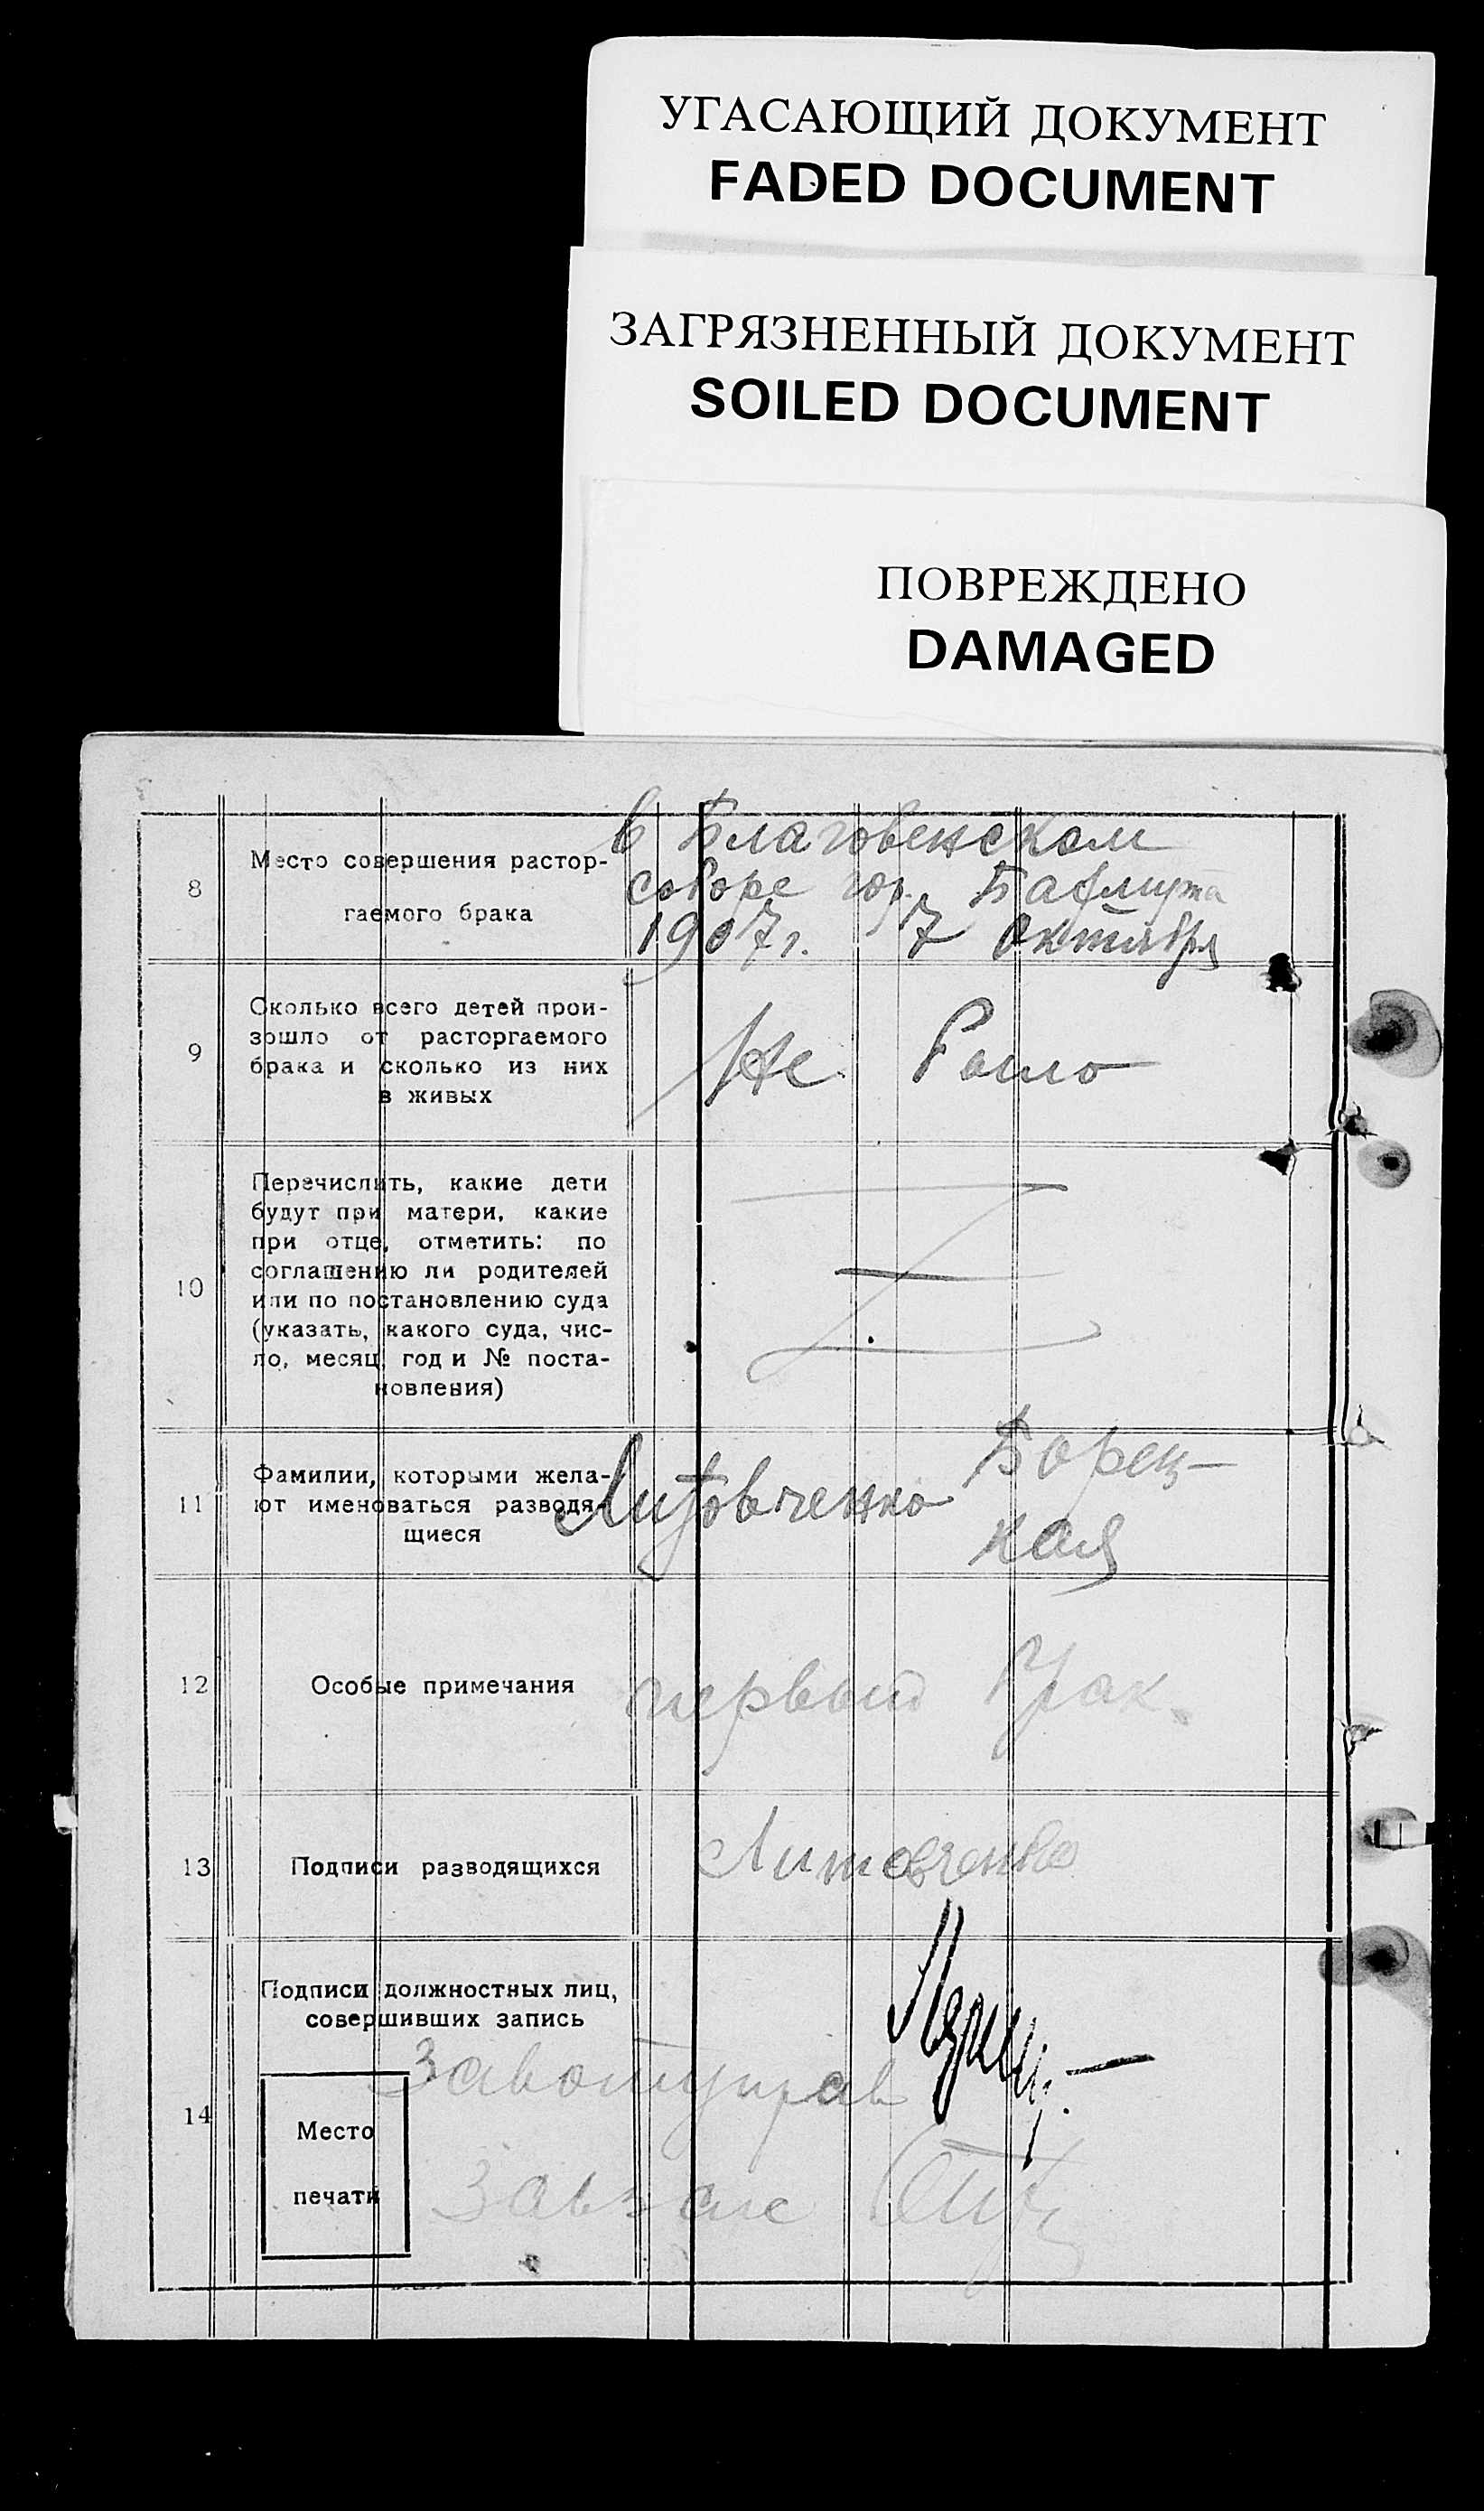 УГАСАЮЩИЙ ДОКУМЕНТ
FADED DOCUMENT
ЗАГРЯЗНЕННЫЙ ДОКУМЕНТ
SOILED DOCUMENT
ПОВРЕЖДЕНО
DAMAGED
8
Место совершения растор-
гаемого брака
в Благовенском
соборе гор.
1907 г. 7 Октября
9
Сколько всего детей прои-
зошло от расторгаемого
брака и сколько из них
в живых
Не было
10
Перечислить, какие дети
будут при матери, какие
при отце, отметить: по
соглашению ли родителей
или по постановлению суда
(указать, какого суда, чис-
ло, месяц, год и № поста-
новления)
11
Фамилии, которыми жела-
ют именоваться разводя-
щиеся
Литовченко Борец-
кая
12
Особые примечания
первый брак.
13
Подписи разводящихся
Литовченко
14
Подписи должностных лиц,
совершивших запись
Завотуправ
Место
печати
Завзагс